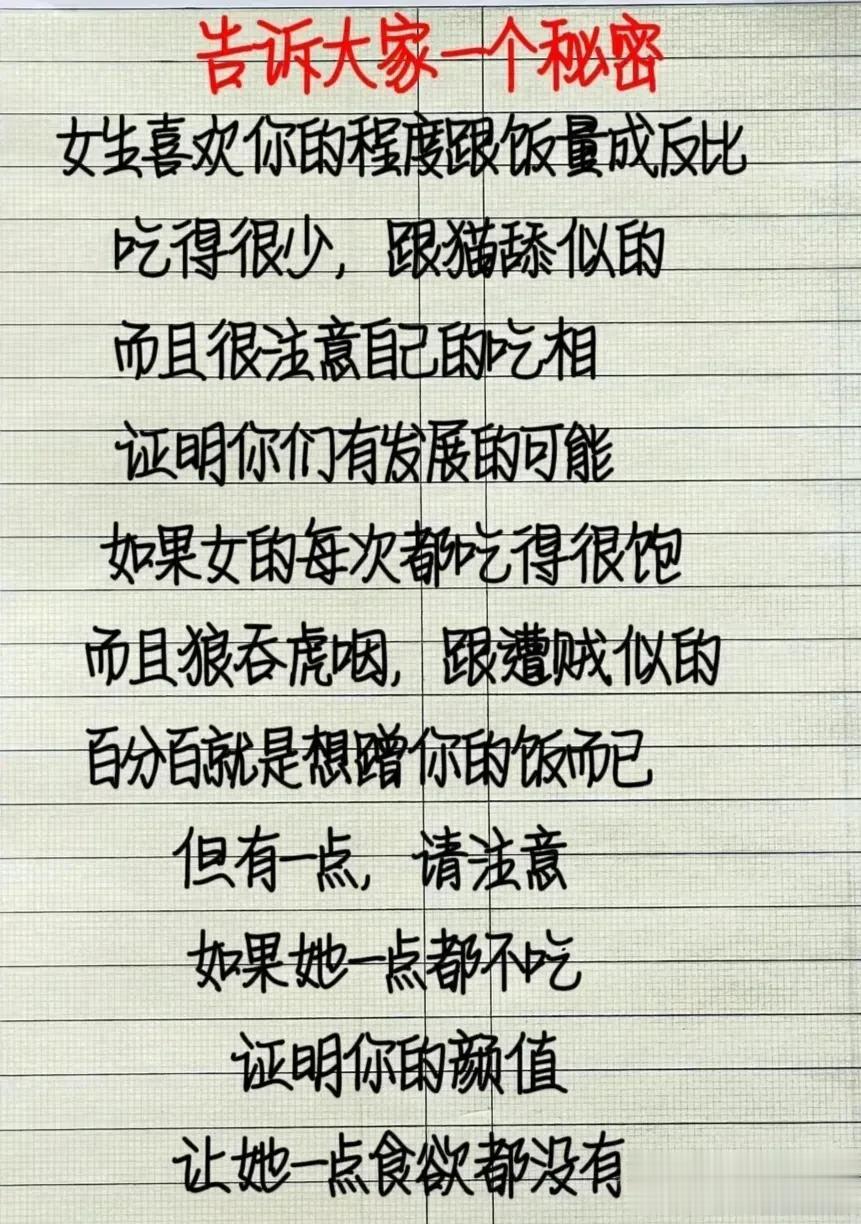 告诉大家一个秘密
女生喜欢你的程度跟饭量成反比
吃得很少，跟猫舔似的
而且很注意自己的吃相
证明你们有发展的可能
如果女的每次都吃得很饱
而且狼吞虎咽，跟遭贼似的
百分百就是想蹭你的饭而已
但有一点，请注意
如果她一点都不吃
证明你的颜值
让她一点食欲都没有